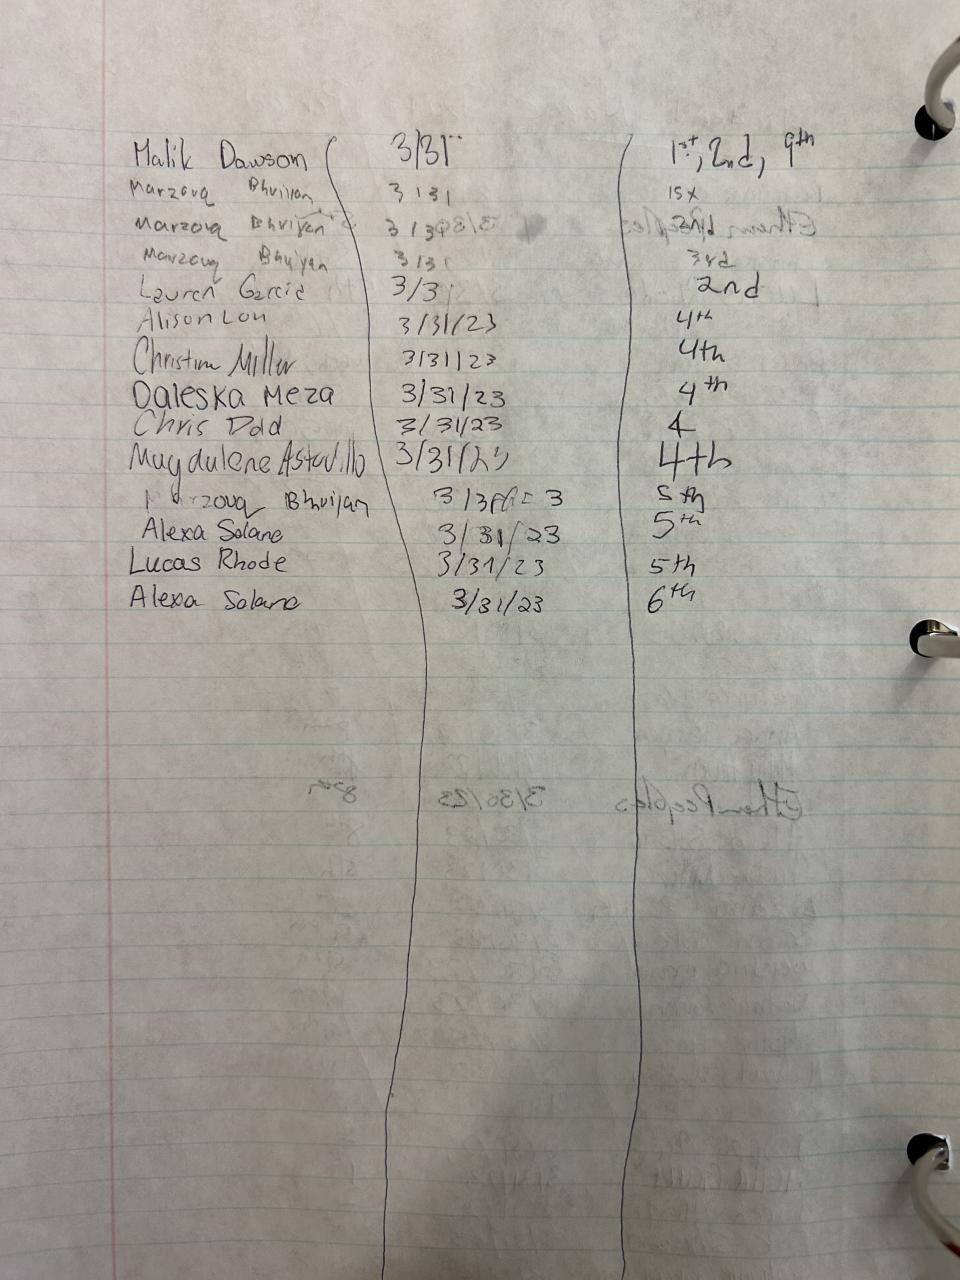 Malik Dawson 3/31 1st, 2nd, 9th
Marzouq Bhuiyan 3/31 1st
Marzouq Bhuiyan 3/3
Marzouq Bhuiyan 3/31 3rd
Lauren Garcia 3/3 2nd
Alison Lou 3/31/23 4th
Christina Miller 3/31/23 4th
Daleska Meza 3/31/23 4th
Chris Dodd 3/31/23 4
Magdalene Astudillo 3/31/23 4th
Marzouq Bhuiyan 5th
Alexa Solano 3/31/23 5th
Lucas Rhode 3/31/23 5th
Alexa Solano 3/31/23 6th
Ethan Peeples 3/30/23 8th